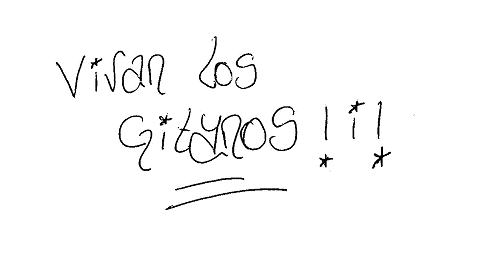 Vivan Los
Gitanos !¡!